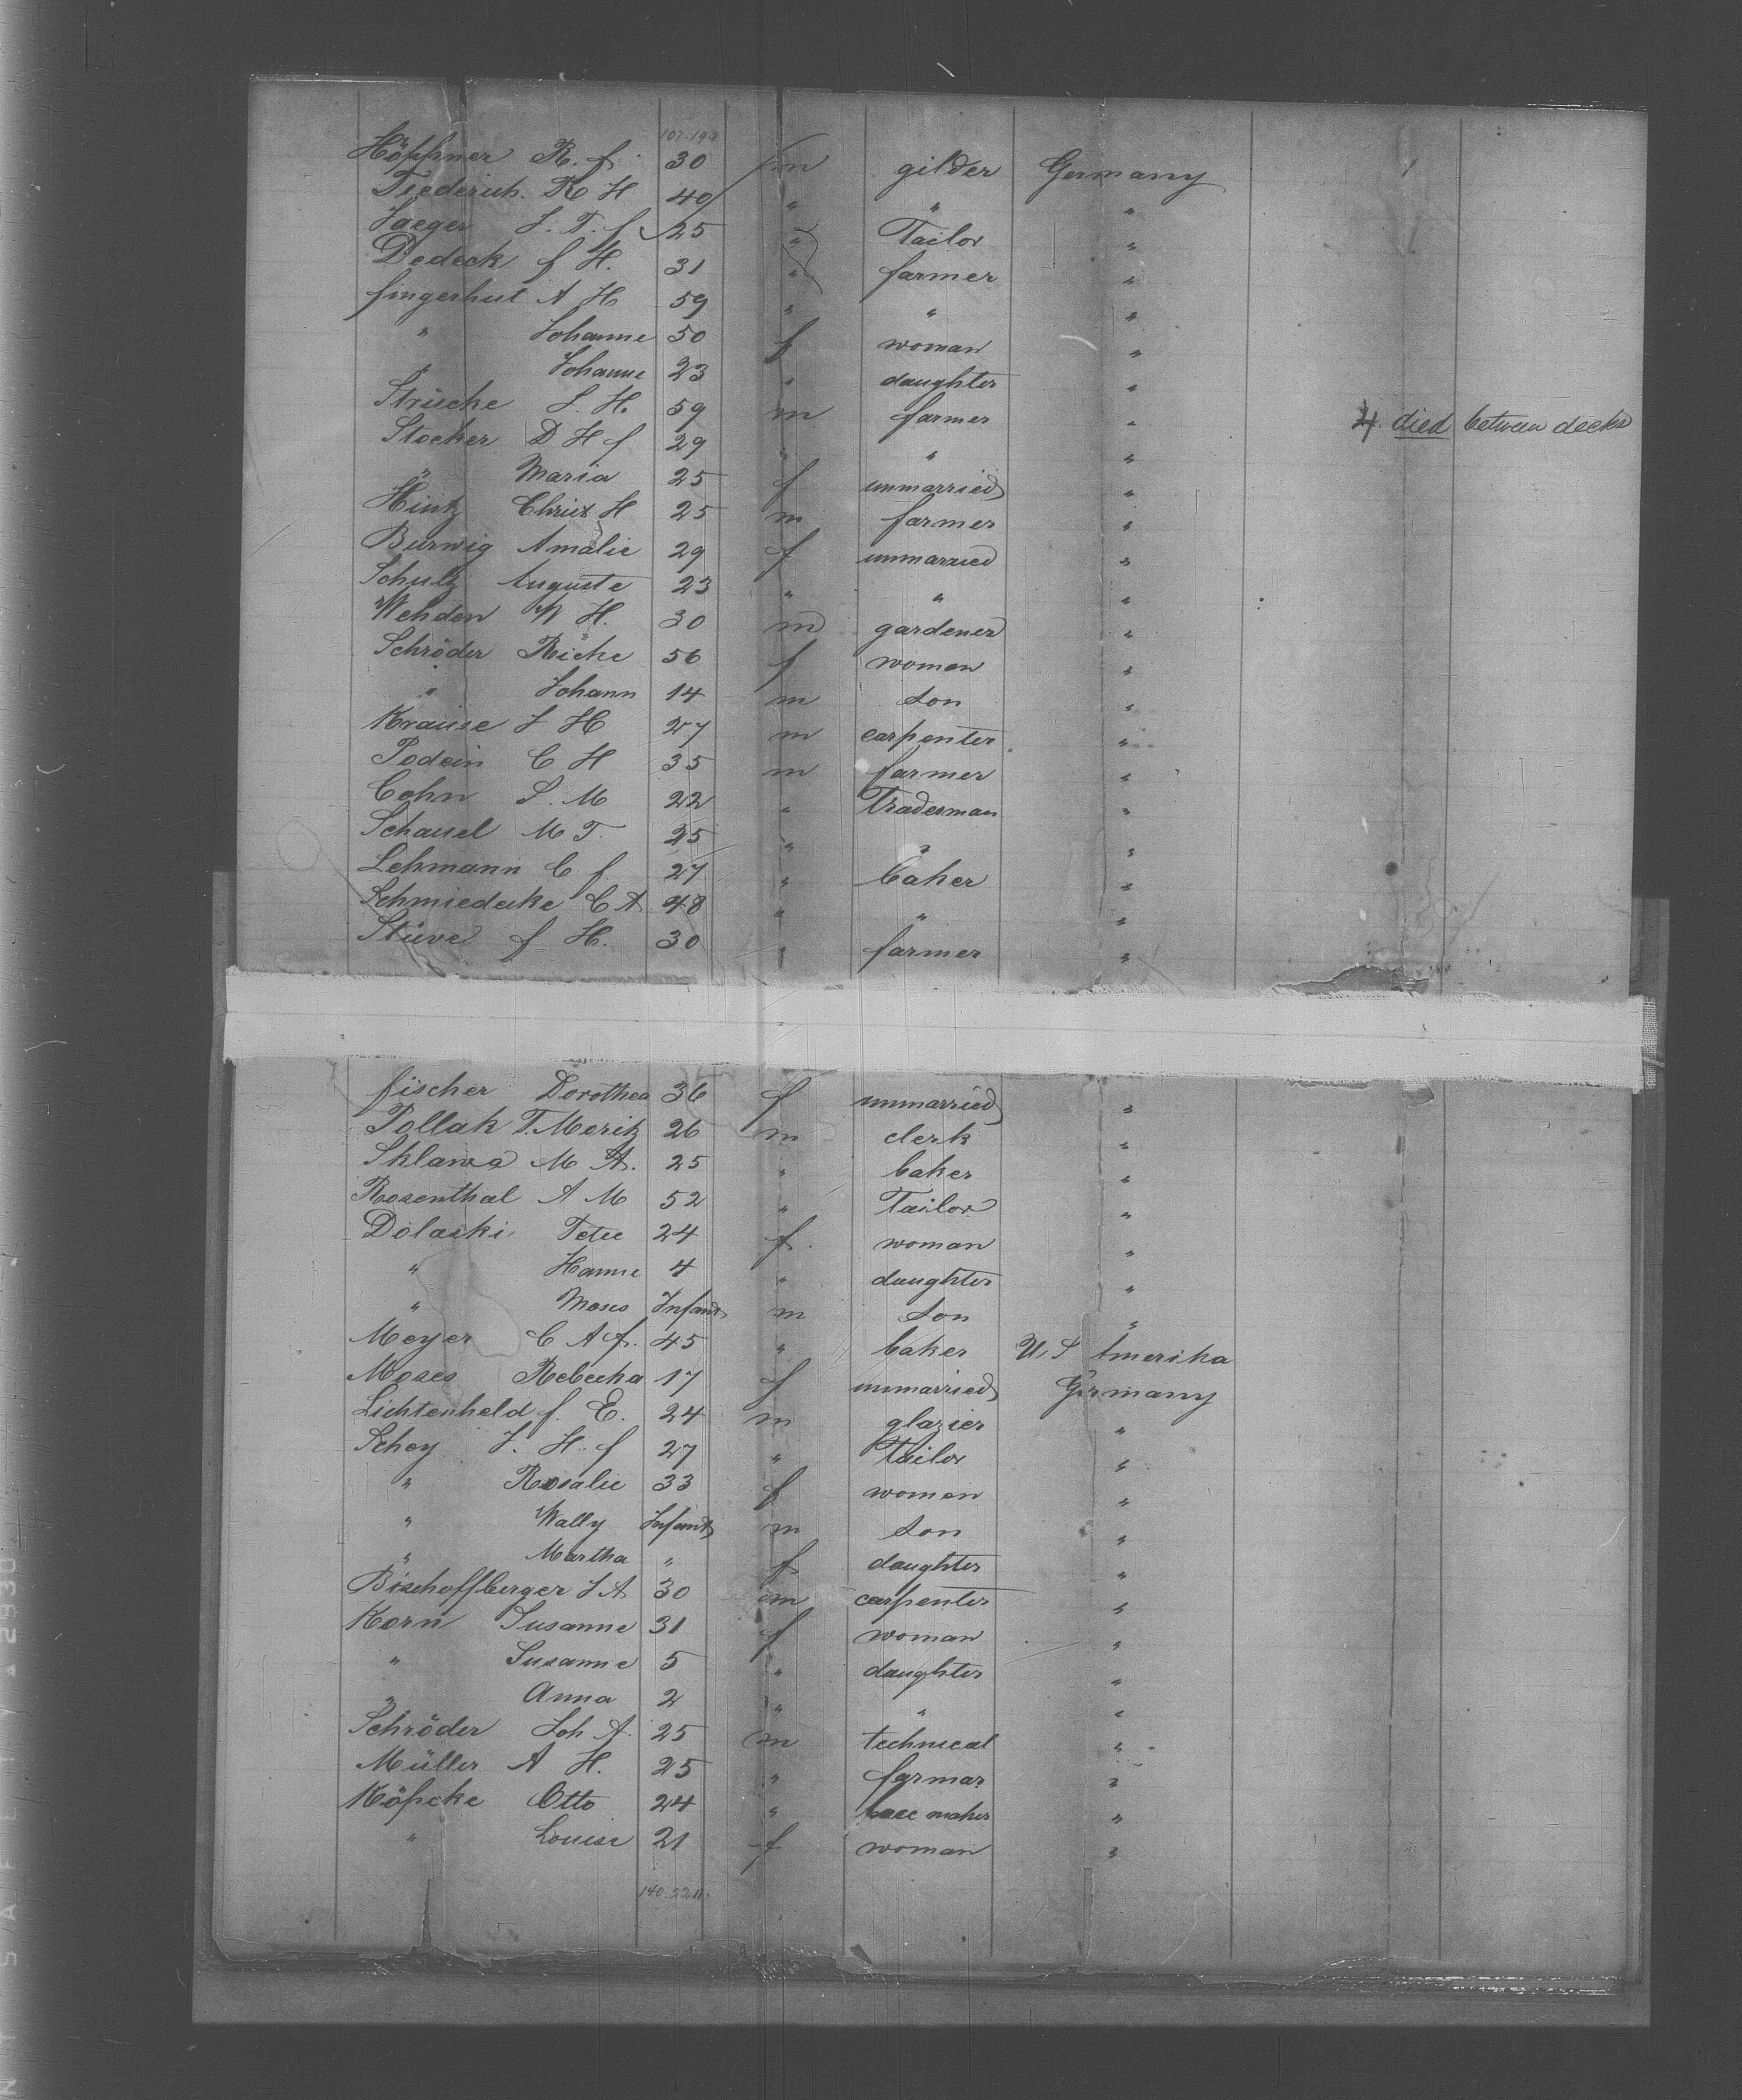 Höppner R. f. 30 m gilder Germany
Diederich. R H 40 " " "
Jaeger J. T. f 25 " Tailor "
Dedeck f H. 31 " farmer "
fingerhut A H 59 " " "
" Johanne 50 f woman "
" Johanne 23 " daughter "
Strücke J. H. 59 m farmer " 4. died between decks
Stocker D H f 29 " " "
" Maria 25 f unmarried "
Hintz Christ H 25 m farmer "
Burwig Amalie 29 f unmarried "
Schulz Auguste 23 " " "
Wehden W H. 30 m gardener "
Schröder Rieke 56 f women "
" Johann 14 m son "
Krause J H 27 m carpenter "
Podein C H 35 m farmer "
Cohn S. M 22 " Tradesman "
Schausel M T. 25 " " "
Lehmann C f. 27 " baker "
Schmiedecke C A 48 " " "
Stüve f H. 30 " farmer "
fischer Dorothea 36 f unmarried "
Pollak T. Moritz 26 m clerk "
Sklawa M A. 25 " baker "
Rosenthal A M 52 " Tailor "
Dolaski Tete 24 f. woman "
" Hanne 4 " daughter "
" Moses Infant m son "
Meyer C A f. 45 " baker U. S Amerika
Moses Rebecka 17 f unmarried Germany
Lichtenheld f. E. 24 m glazier "
Schey J. H. f 27 " Tailor "
" Rosalie 33 f women "
" Wally Infant m son "
" Martha " f daughter "
Bischoffberger J A 30 m carpenter "
Korn Susanne 31 f woman "
" Susanne 5 " daughter "
" Anna 2 " " "
Schröder Joh A. 25 m technical "
Müller A H. 25 " farmar "
Köpcke Otto 24 " lace maker "
" Louise 21 f woman "
140. 22. 11.